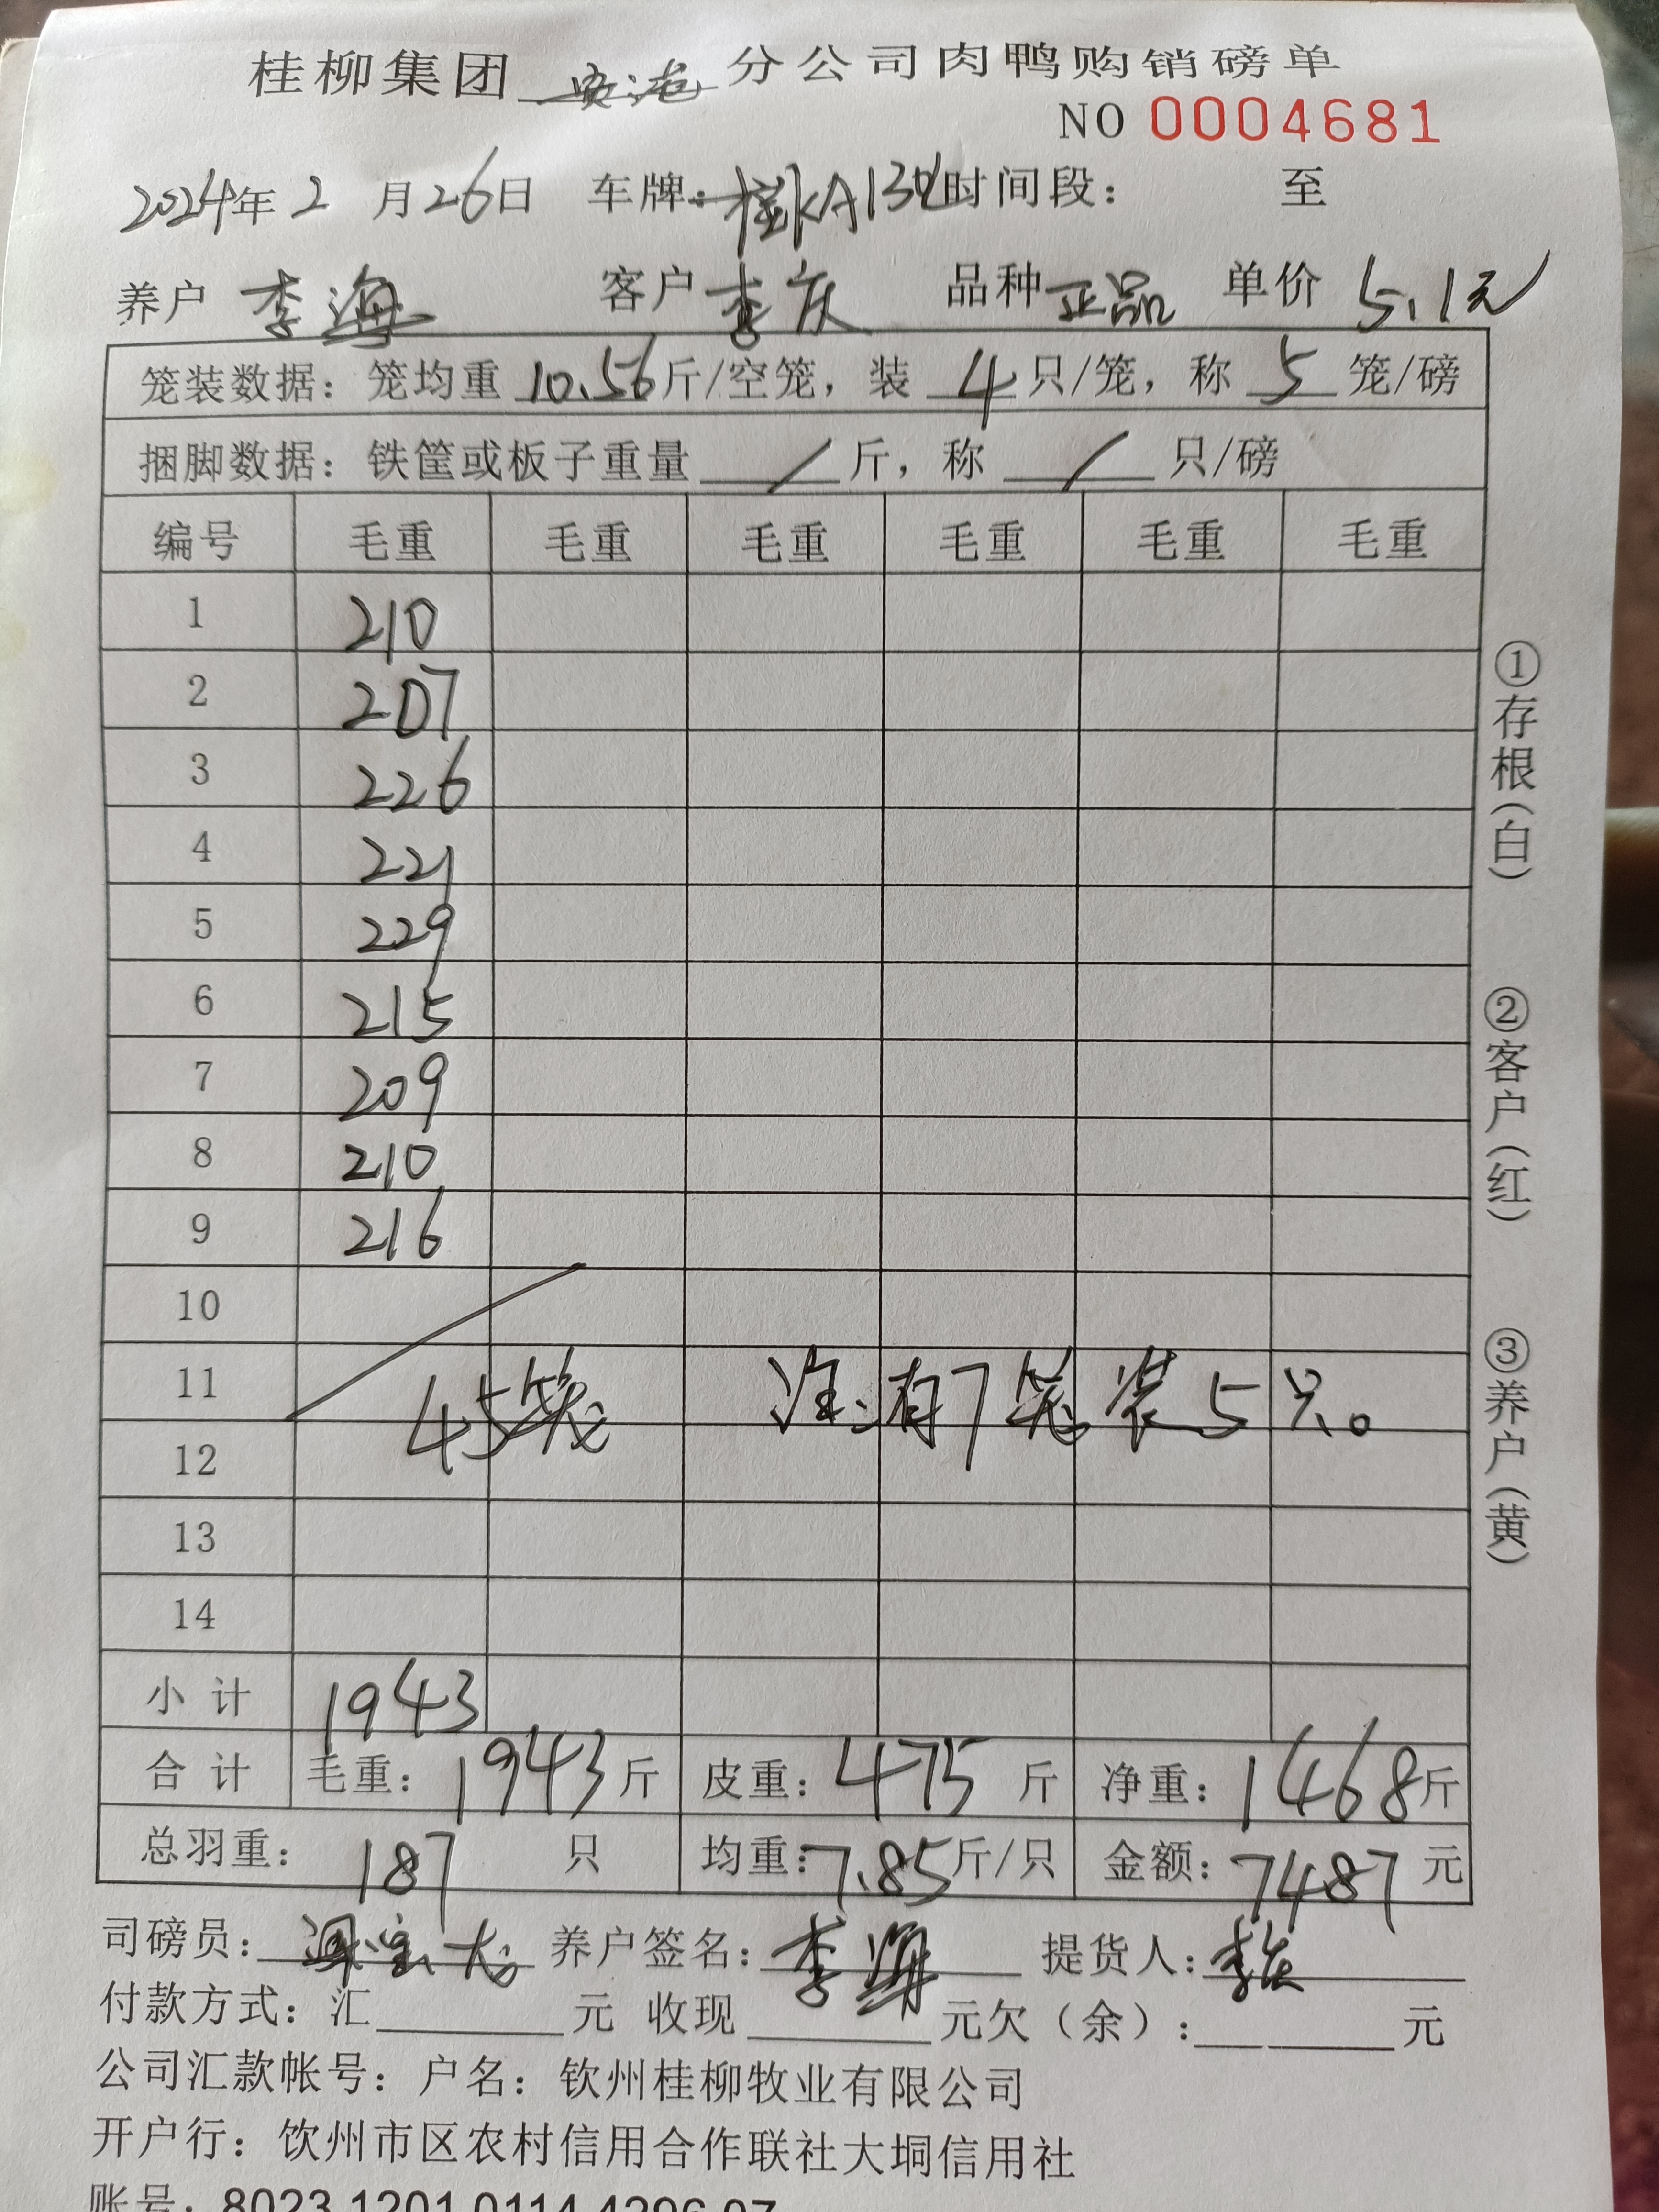 桂柳集团 分公司肉鸭购销磅单
NO 0004681
2024年 2 月26日 车牌: 桂KA 时间段: 至
养户 李海 客户 李庆 品种 正品 单价 5.1元
笼装数据: 笼均重 10.56 斤/空笼, 装 4 只/笼, 称 5 笼/磅
捆脚数据: 铁筐或板子重量 / 斤, 称 / 只/磅
编号 毛重 毛重 毛重 毛重 毛重 毛重
1 210
2 207
3 226
4 221
5 229
6 215
7 209
8 210
9 216
10
11
45笼 注:有7笼装5只。
12
13
14
小 计 1943
合 计 毛重: 1943 斤 皮重: 475 斤 净重: 1468 斤
总羽重: 187 只 均重: 7.85 斤/只 金额: 7487 元
司磅员: 养户签名: 李海 提货人: 李庆
付款方式: 汇 元 收现 元欠(余): 元
公司汇款帐号: 户名: 钦州桂柳牧业有限公司
开户行: 饮州市区农村信用合作联社大垌信用社
账号: 8023 1201 0114 4296 07
①存根(白)
②客户(红)
③养户(黄)